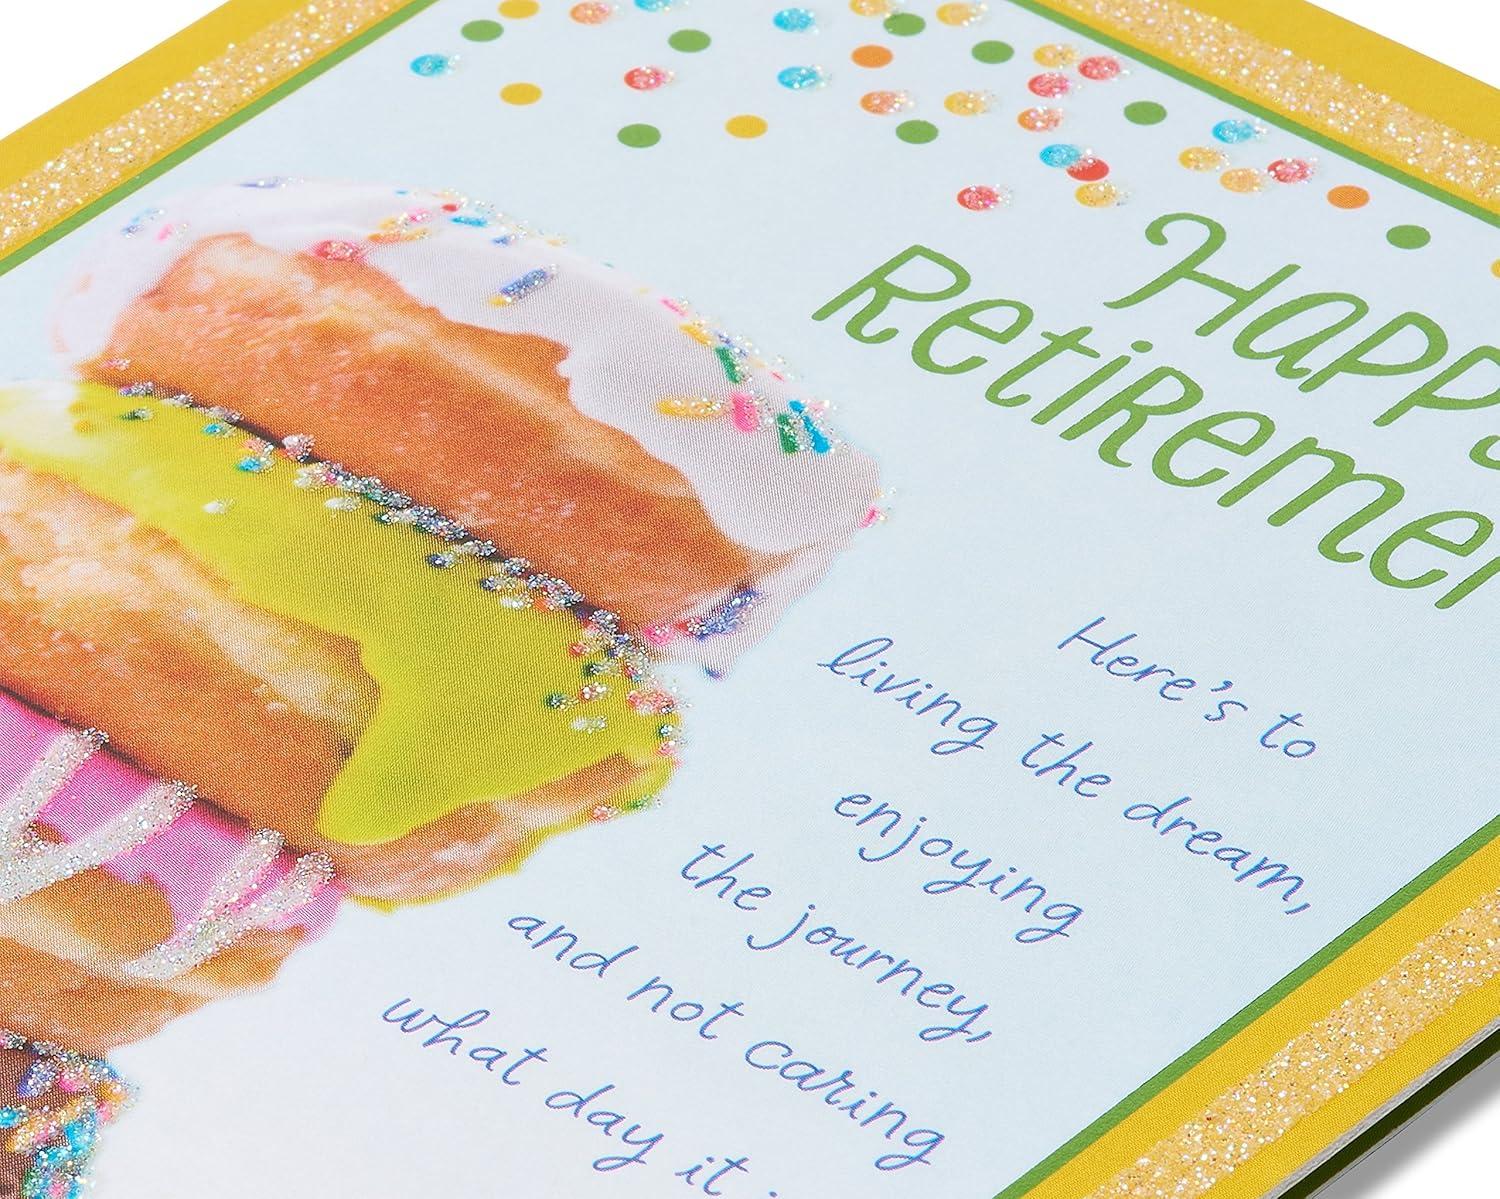 Happy
Retiremen
Here's to
living the dream,
enjoying
the journey,
and not caring
what day it